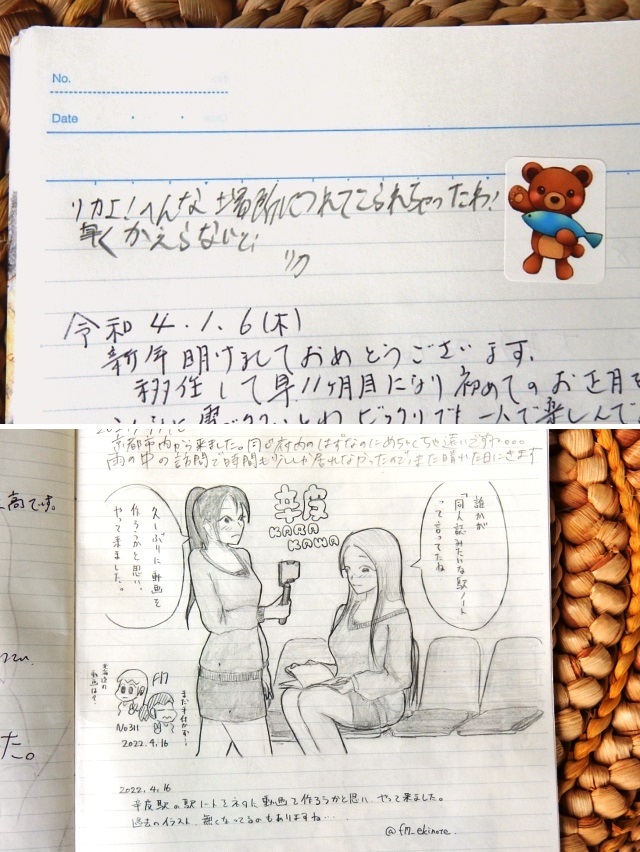 No.
Date
リカよ!へんな場所につれてこられちゃったわ!
早くかえらないと!
リカ
令和4.1.6(木)
新年明けましておめでとうございます。
移住して早11ヶ月目になり初めてのお正月を
京都市内から来ました。同じ府内のはずなのにめちゃくちゃ遠いですね…
雨の中の訪問で時間も少ししか居れなかったのでまた晴れた日にきます
高です。
た。
久しぶりに動画を
作ろうかと思い、
やって来ました。
辛皮
KARA
KAWA
誰かが
「同人誌みたいな駅ノート」
って言ってたね
北海道の
動画は?
F17
まだ手付かず!
No311
2022.4.16
2022.4.16
辛皮駅の駅ノートをネタに動画を作ろうかと思い やって来ました。
過去のイラスト、無くなってるのもありますね…
@f17_ekinote